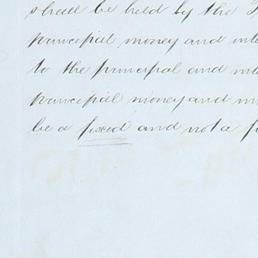 shall be held by the
principal money and inte
to the principal and int
principal money and in
be a fixed and not a f